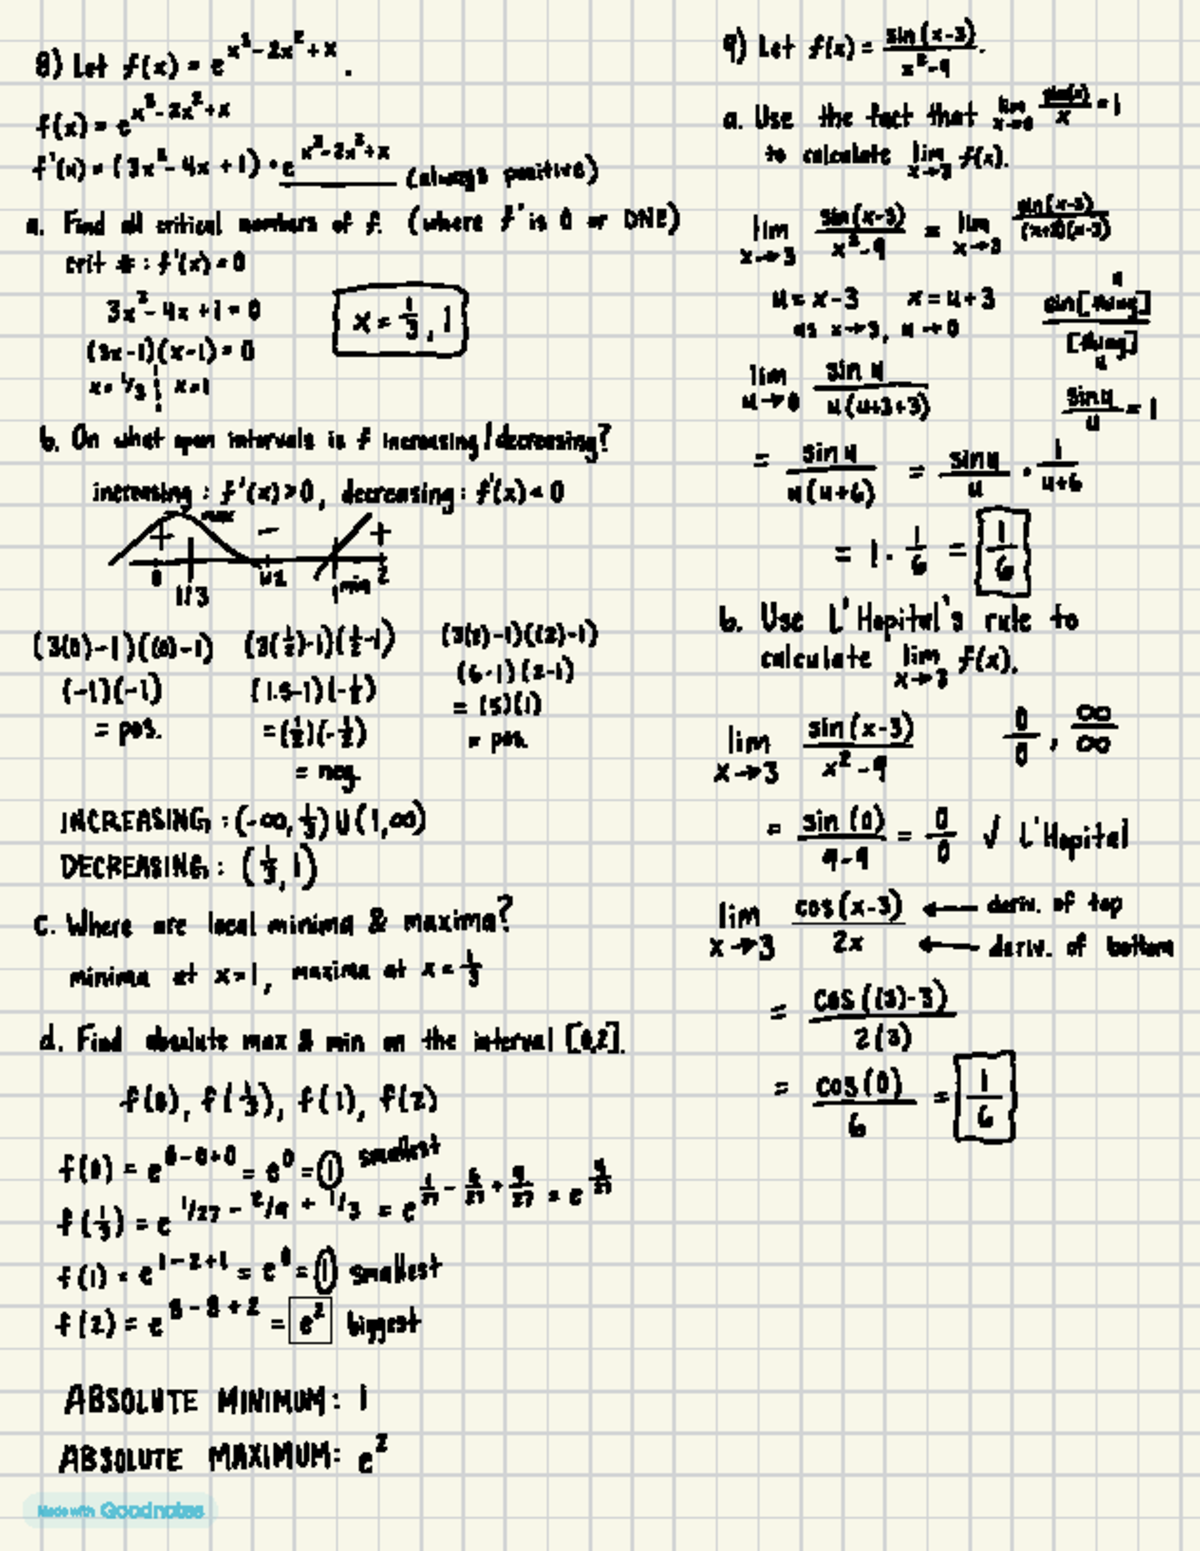 8) Let f(x) = e^(x³-2x²+x).
f(x) = e^(x³-2x²+x)
f'(x) = (3x²-4x+1)·e^(x³-2x²+x) (always positive)
a. Find all critical numbers of f. (where f' is 0 or DNE)
crit #: f'(x)=0
3x²-4x+1=0
x = 1/3, 1
(3x-1)(x-1)=0
x=1/3 | x=1
b. On what open intervals is f increasing/decreasing?
increasing: f'(x)>0, decreasing: f'(x)<0
max
+ - +
0 1/3 1/2 1 min 2
(3(0)-1)((0)-1) (3(1/2)-1)(1/2-1) (3(2)-1)((2)-1)
(-1)(-1) (1.5-1)(-1/2) (6-1)(2-1)
= pos. =(1/2)(-1/2) = (5)(1)
= neg. = pos.
INCREASING: (-∞, 1/3) U (1,∞)
DECREASING: (1/3, 1)
c. Where are local minima & maxima?
minima at x=1, maxima at x=1/3
d. Find absolute max & min on the interval [0,2].
f(0), f(1/3), f(1), f(2)
f(0) = e^(0-0+0) = e^0 = 1 smallest
f(1/3) = e^(1/27 - 2/9 + 1/3) = e^(1/27 - 6/27 + 9/27) = e^(4/27)
f(1) = e^(1-2+1) = e^0 = 1 smallest
f(2) = e^(8-8+2) = e² biggest
ABSOLUTE MINIMUM: 1
ABSOLUTE MAXIMUM: e²
Made with Goodnotes
9) Let f(x) = sin(x-3)/(x²-9).
a. Use the fact that lim x→0 sin(x)/x = 1
to calculate lim x→3 f(x).
lim x→3 sin(x-3)/(x²-9) = lim x→3 sin(x-3)/((x+3)(x-3))
u = x-3 x = u+3
as x→3, u→0
u
sin[thing]/[thing]
u
lim u→0 sin u/(u(u+3+3))
sin u/u = 1
= sin u/(u(u+6)) = sin u/u · 1/(u+6)
= 1 · 1/6 = 1/6
b. Use L'Hopital's rule to
calculate lim x→3 f(x).
lim x→3 sin(x-3)/(x²-9) 0/0, ∞/∞
= sin(0)/(9-9) = 0/0 √ L'Hopital
lim x→3 cos(x-3)/2x ← deriv. of top
← deriv. of bottom
= cos((3)-3)/2(3)
= cos(0)/6 = 1/6